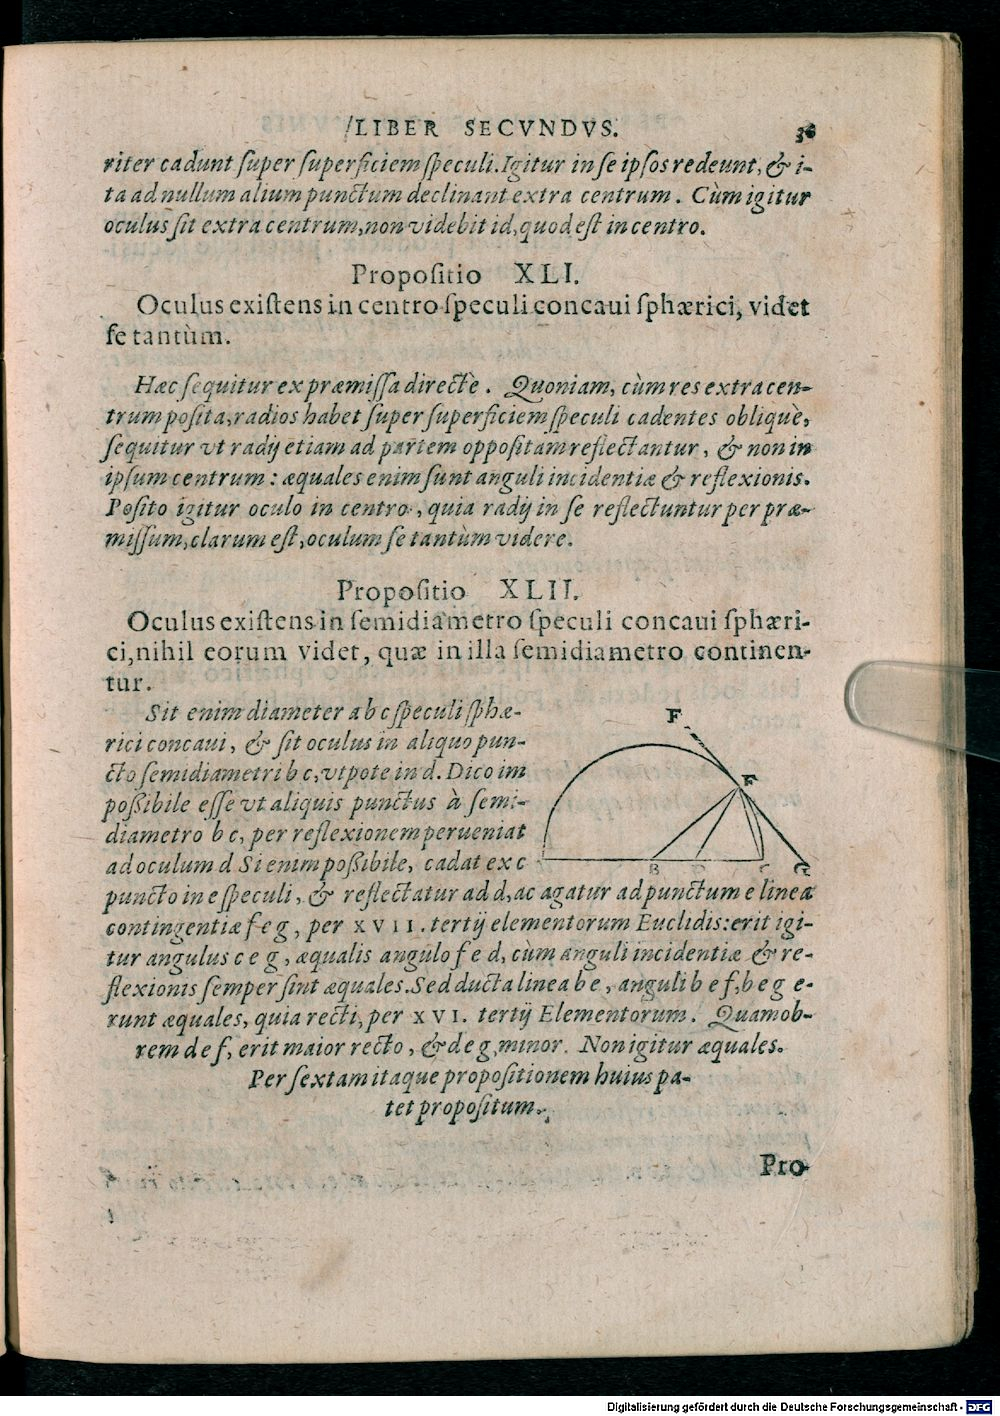 LIBER SECVNDVS. 36
riter cadunt super superficiem speculi. Igitur in se ipsos redeunt, & i-
ta ad nullum alium punctum declinant extra centrum. Cùm igitur
oculus sit extra centrum, non videbit id, quod est in centro.
Propositio XLI.
Oculus existens in centro speculi concaui sphærici, videt
se tantùm.
Hæc sequitur ex præmissa directè. Quoniam, cùm res extra cen-
trum posita, radios habet super superficiem speculi cadentes obliquè,
sequitur vt radij etiam ad partem oppositam reflectantur, & non in
ipsum centrum: æquales enim sunt anguli incidentiæ & reflexionis.
Posito igitur oculo in centro, quia radij in se reflectuntur per præ-
missum, clarum est, oculum se tantùm videre.
Propositio XLII.
Oculus existens in semidiametro speculi concaui sphæri-
ci, nihil eorum videt, quæ in illa semidiametro continen-
tur.
Sit enim diameter a b c speculi sphæ-
rici concaui, & sit oculus in aliquo pun-
cto semidiametri b c, vtpote in d. Dico im
poßibile esse vt aliquis punctus à semi-
diametro b c, per reflexionem perueniat
ad oculum d Si enim poßibile, cadat ex c
puncto in e speculi, & reflectatur ad d, ac agatur ad punctum e linea
contingentiæ f e g, per XVII. tertij elementorum Euclidis: erit igi-
tur angulus c e g, æqualis angulo f e d, cùm anguli incidentiæ & re-
flexionis semper sint æquales. Sed ducta linea b e, anguli b e f, b e g e-
runt æquales, quia recti, per XVI. tertij Elementorum. Quamob-
rem d e f, erit maior recto, & d e g, minor. Non igitur æquales.
Per sextam itaque propositionem huius pa-
tet propositum.
F
E
B
D
C
G
Pro-
Digitalisierung gefördert durch die Deutsche Forschungsgemeinschaft - DFG